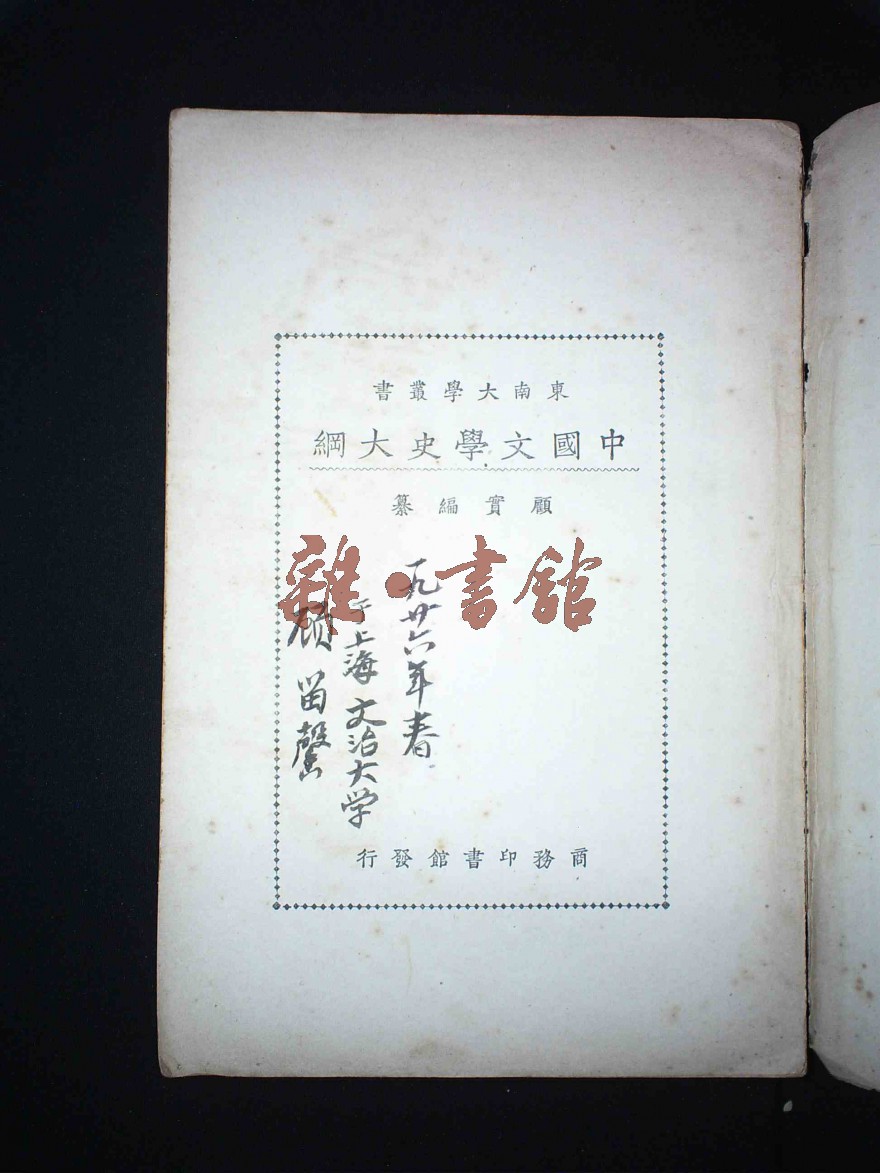 東南大學叢書
中國文學史大綱
顧實編纂
雜·書館
一九廿六年春
于上海文治大学
顾留馨
商務印書館發行